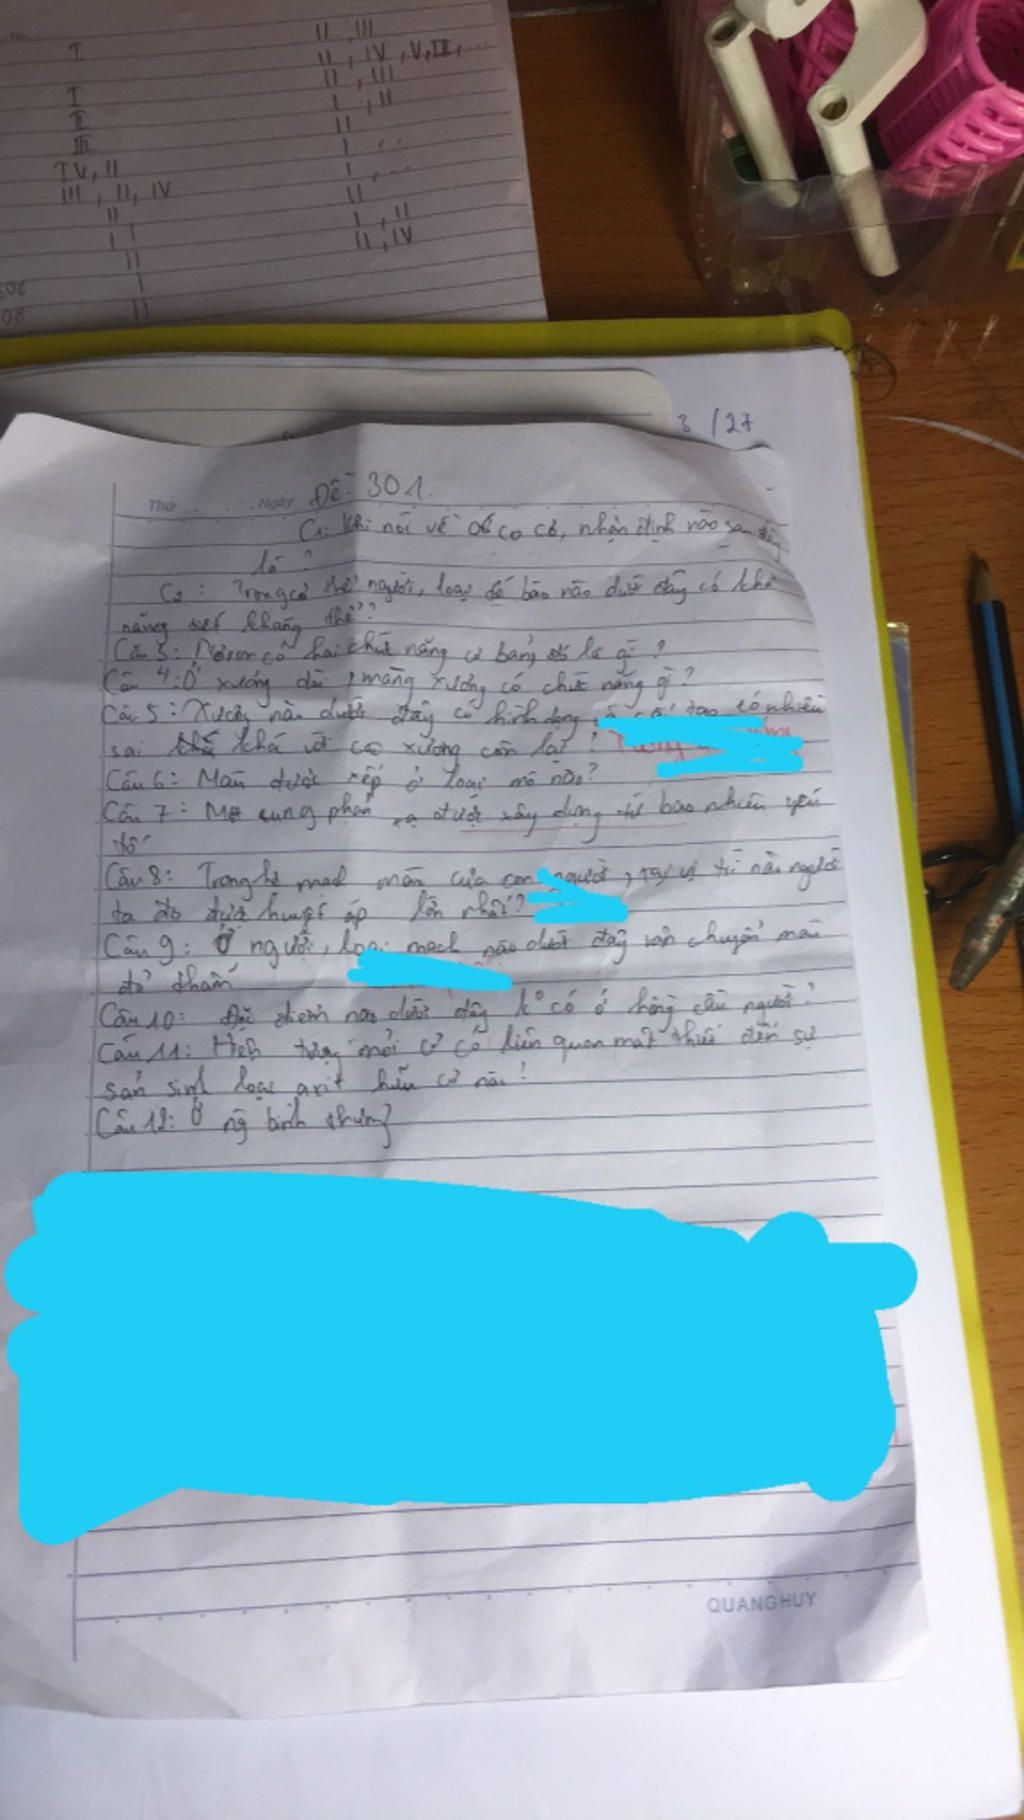 I II, III
II, IV, V, III, ...
II, III
I I, II
I II
III I
IV, II I
III, II, IV II
II I, II
I I II, IV
II
I
II
3 / 27
Thứ Ngày Đề: 301.
C1: Khi nói về cơ co cơ, nhận định nào sau đây
là ?
C2: Trong cơ thể người, loại tế bào nào dưới đây có khả
năng tiết kháng thể?
Câu 3: Nơron có hai chức năng cơ bản, đó là gì?
Câu 4: Ở xương dài, màng xương có chức năng gì?
Câu 5: Xương nào dưới đây có hình dạng cấu tạo có nhiều
sai khá khá với các xương còn lại?
Câu 6: Máu được xếp ở loại mô nào?
Câu 7: Một cung phản xạ được xây dựng từ bao nhiêu yếu
tố
Câu 8: Trong hệ mạch máu của con người, tại vị trí nào người
ta đo được huyết áp lớn nhất?
Câu 9: Ở người, loại mạch nào dưới đây vận chuyển máu
đỏ thẫm
Câu 10: Đặc điểm nào dưới đây k° có ở hồng cầu người?
Câu 11: Hiện tượng mỏi cơ có liên quan mật thiết đến sự
sản sinh loại axit hữu cơ nào?
Câu 12: Ở ng bình thường
QUANGHUY